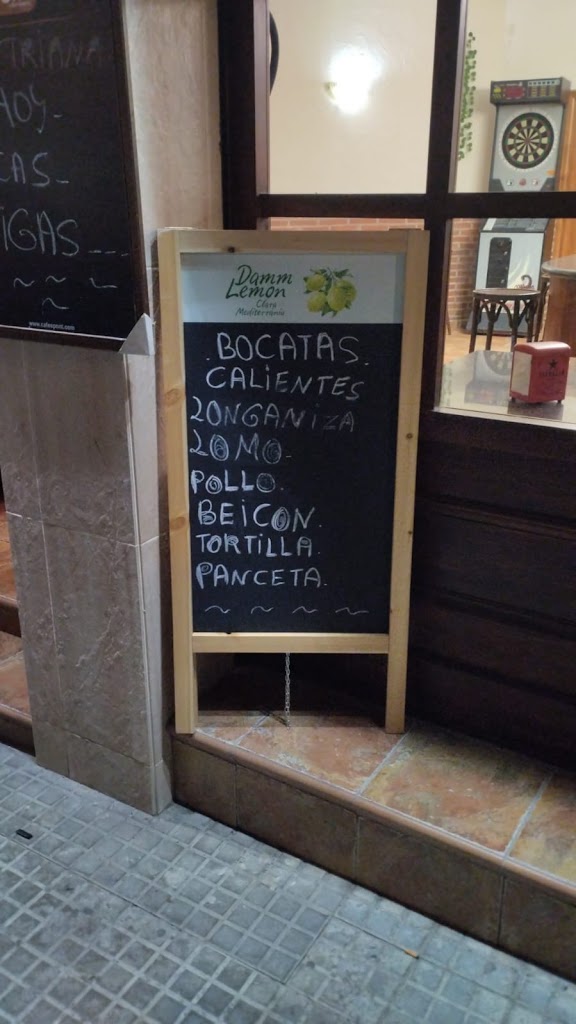 TRIANA
HOY_
CAS_
IGAS___
www.cafesport.com
Damm
Lemon
Clara
Mediterránea
.BOCATAS.
CALIENTES
LONGANIZA
LOMO-
POLLO.
BEICON.
TORTILLA.
PANCETA.
~ ~ ~ ~